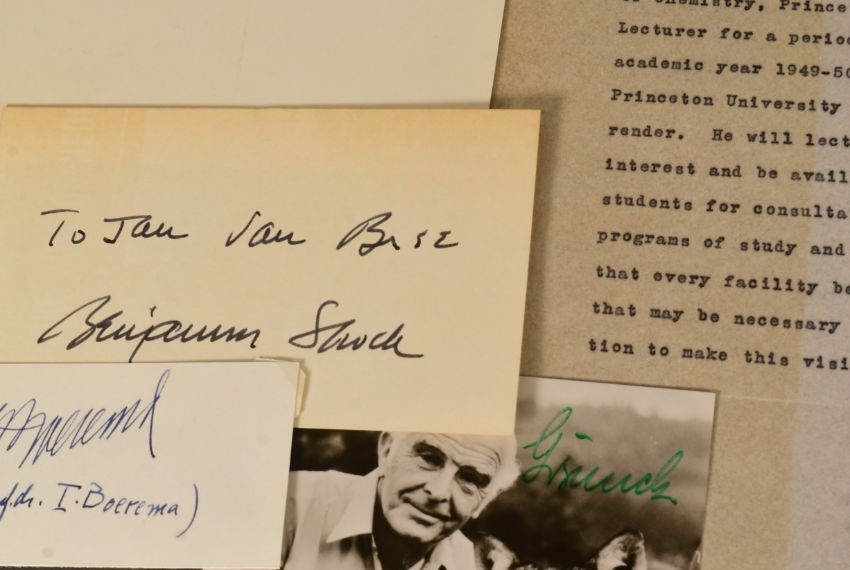 of chemistry, Prince
Lecturer for a period
academic year 1949-50
Princeton University
render. He will lect
interest and be avail
students for consulta
programs of study and
that every facility be
that may be necessary
tion to make this visi
To Jan Van
Benjamin
I. Boerema)